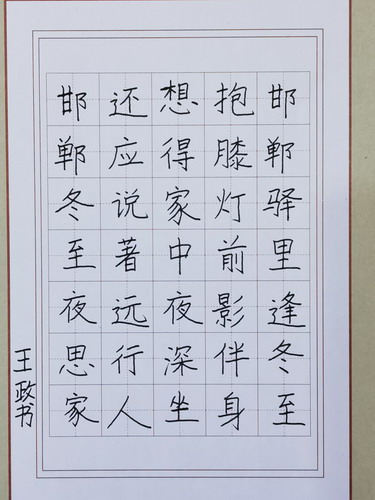 邯郸驿里逢冬至
抱膝灯前影伴身
想得家中夜深坐
还应说著远行人
邯郸冬至夜思家
王政书